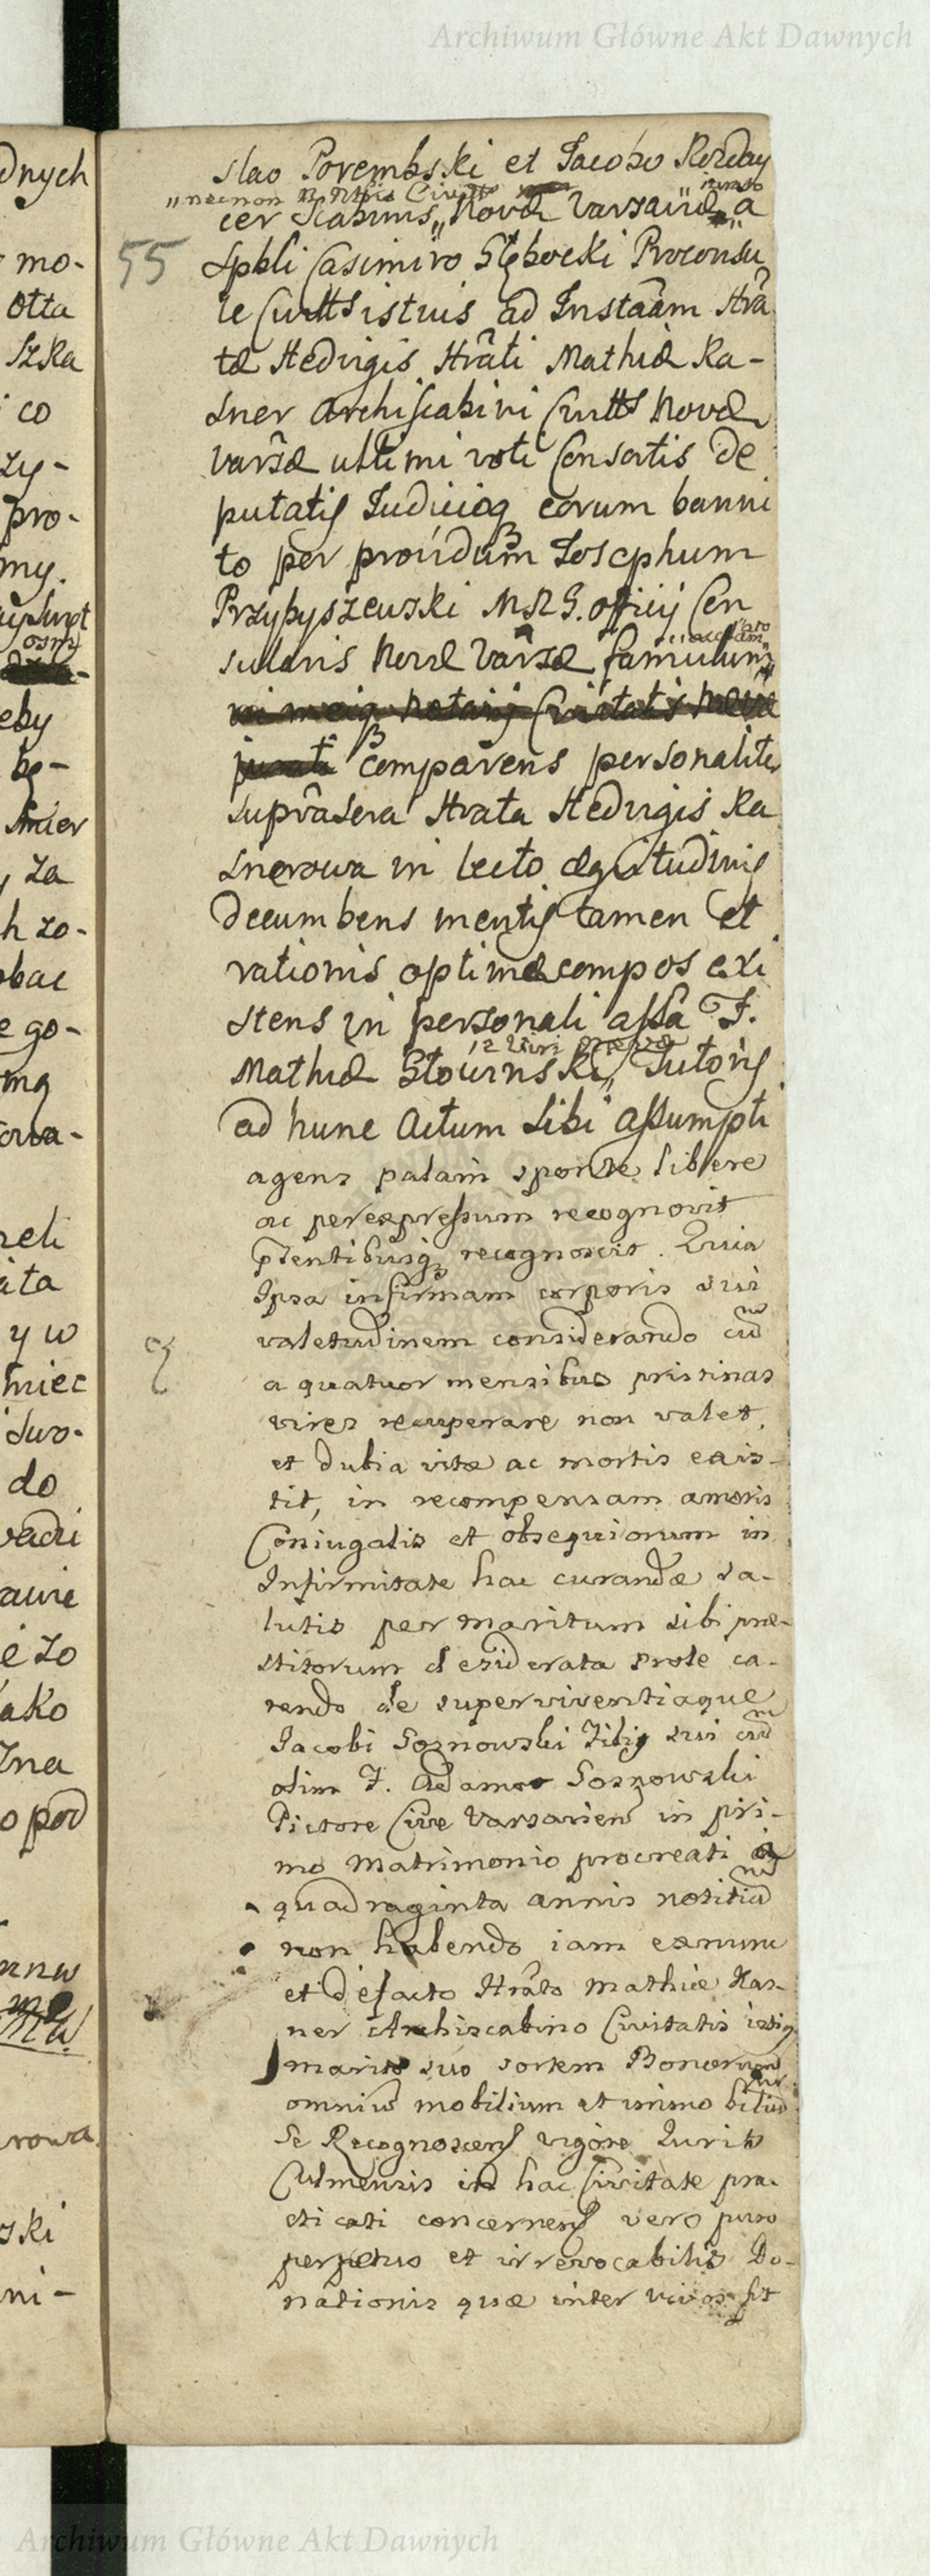 Archiwum Główne Akt Dawnych
slao Porembski et Jacobo Rozday
„necnon Nthis Civitts
cer Scabinis „ Novæ Varsaviæ a
55
Spbli Casimiro Głębocki Proconsu
le Civitts istius ad Instaām Hra
tæ Hedvigis Hrāti Mathiæ Ka-
sner Archiscabini Civitts Novæ
Varsæ ultimi voti Consortis De
putatis Judicioq eorum banni
to per providum Josephum
Przybyszewski M.N.G. officij Con
sularis Novæ Varsæ famulum
comparens personaliter
suprāsera Hrata Hedvigis Ka
snerowa in lecto ægritudinis
Decumbens mentis tamen et
rationis optimæ compos exi
stens in personali assa F.
Mathiæ Słowinski „ Tutoris
ad hunc Actum Sibi Assumpti
agens palam sponte libere
ac per expressum recognovit
pntentibusq recognoscit. Quia
Ipsa infirmam corporis sui
valetudinem considerando cum
a quatuor mensibus pristinas
vires recuperare non valet
et dubia vitæ ac mortis exis-
tit, in recompensam amoris
Coniugalis et obsequiorum in
Infirmitate hac curandæ sa-
lutis per maritum sibi præ-
stitorum desiderata prole ca-
rendo de superviventiaque
Jacobi Sosnowski Filij sui cum
olim F. Adamo Sosnowski
Pictore Cive Varsavien in pri-
mo Matrimonio procreati a
quadraginta annis notitiam
non habendo iam exnunc
et defacto Hrāto Mathiæ Kas-
ner Archiscabino Civitatis istig
marito suo sortem Bonorum
omniū mobilium et immobilium
Se Recognoscens vigore Juris
Culmensis in hac Civitate pra-
cticati concernens vero puro
perpetuo et irrevocabilis Do-
nationis quæ inter vivos fit
Archiwum Główne Akt Dawnych
dnych
mo-
otta
szka
co
zy-
pro-
my.
eby
bę-
za
h zo-
obac
e go-
mą
owa-
reli
ata
y w
miec
dwo-
do
vadi
awie
e zo
ako
zna
o pod
nnw
rowa
ski
ni-